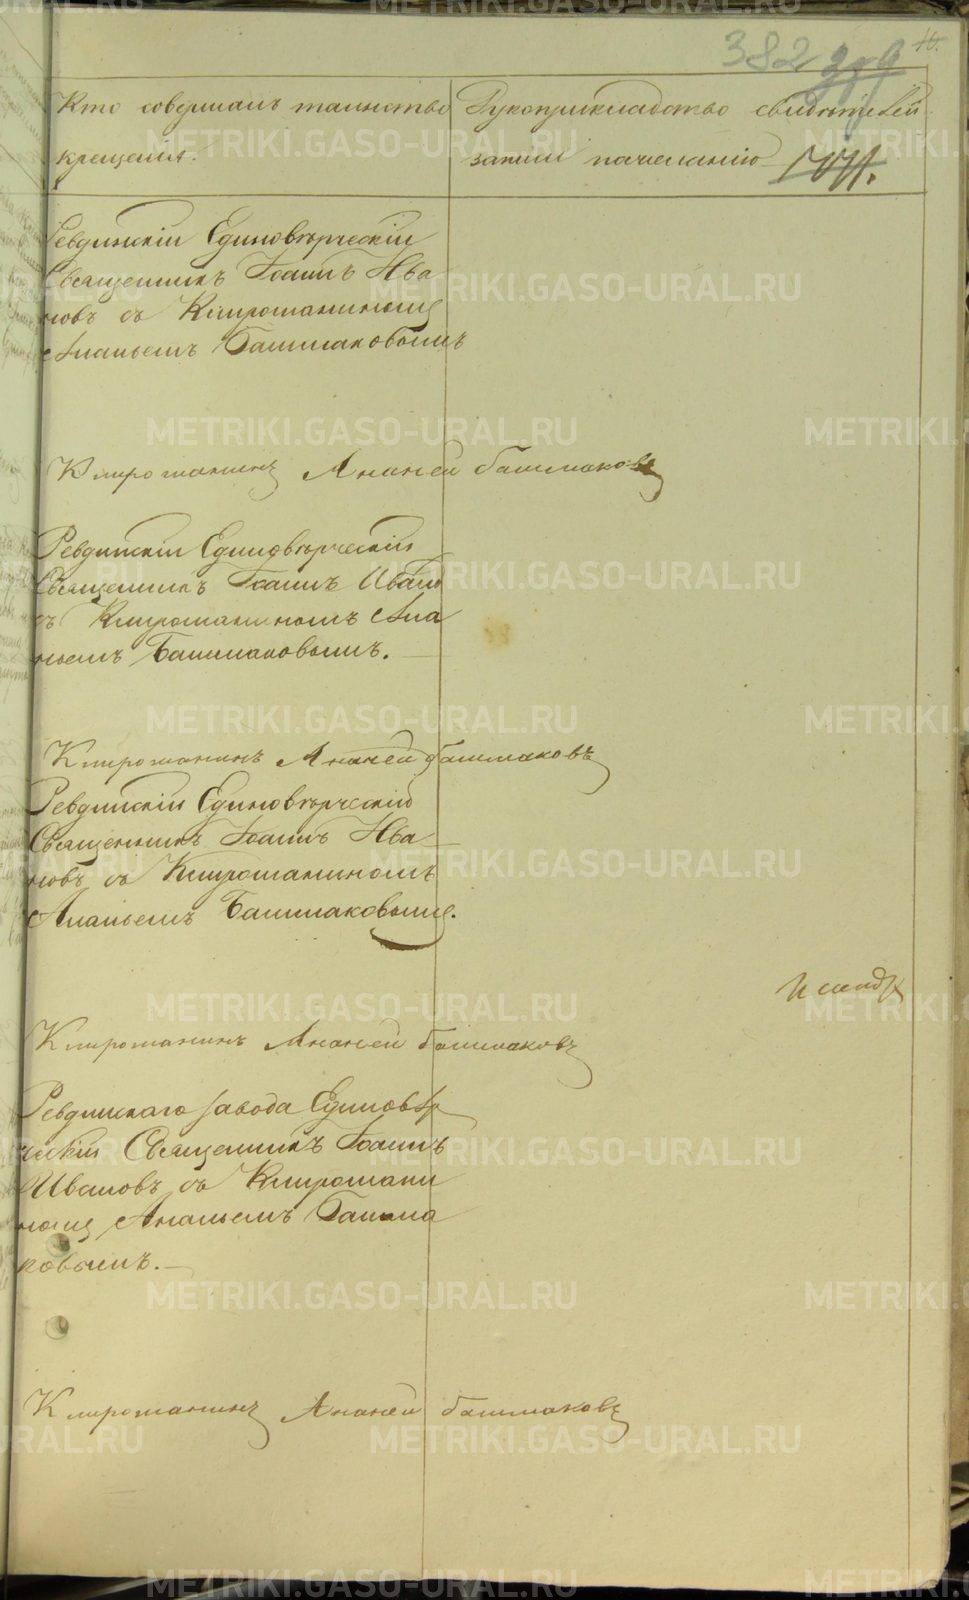 382
Кто совершалъ таинство
крещенія.
Рукоприкладство свидѣтелей
записи по желанію
Ревдинскій Единовѣрческій
Священникъ Іоаннъ Ива
новъ съ Клирошаниномъ
Ананьемъ Башмаковымъ
Клирошанинъ Ананей башмаковъ
Ревдинскій Единовѣрческій
Священникъ Іоаннъ Иван
съ Клирошаниномъ Ана
ньемъ Башмаковымъ.
Клирошанинъ Ананей башмаковъ
Ревдинскій Единовѣрческій
Священникъ Іоаннъ Ива
новъ съ Клирошаниномъ
Ананьемъ Башмаковымъ.
Клирошанинъ Ананей башмаковъ
Ревдинскаго завода Единовѣр
ческій Священникъ Іоаннъ
Ивановъ съ Клирошани
номъ Ананьемъ Башма
ковымъ.
Клирошанинъ Ананей башмаковъ
METRIKI.GASO-URAL.RU